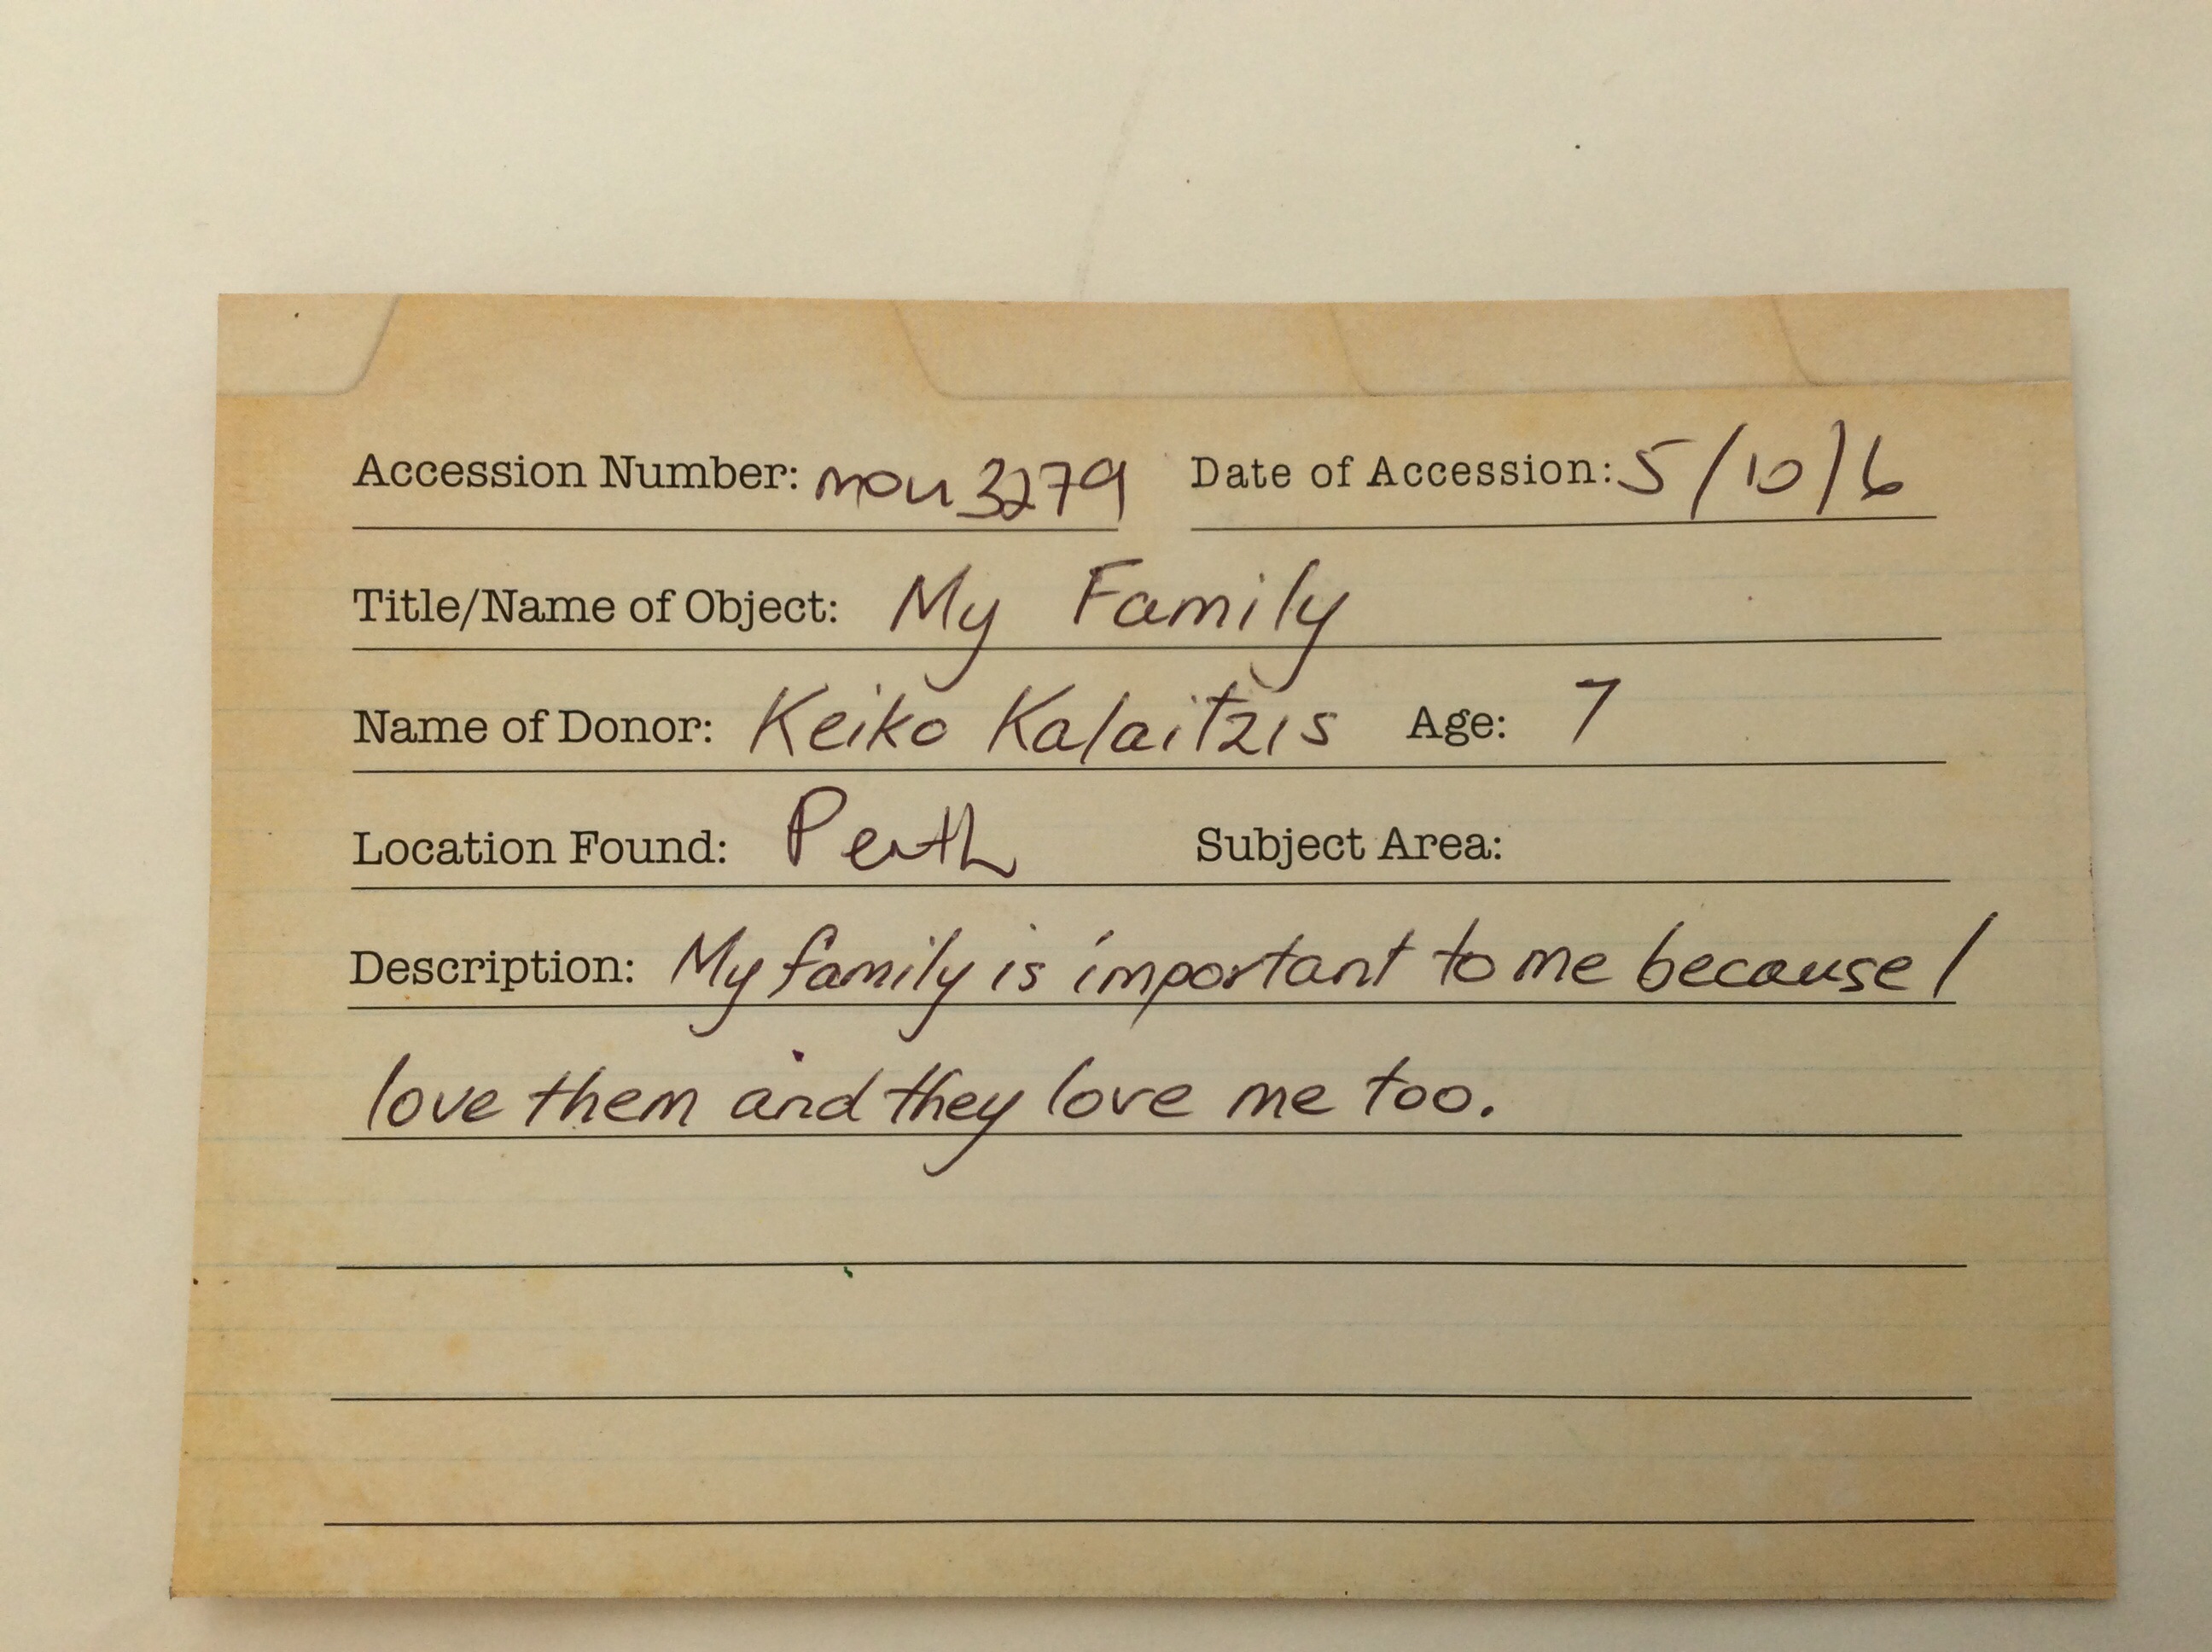 Accession Number: mou3279 Date of Accession: 5/10/6
Title/Name of Object: My Family
Name of Donor: Keiko Kalaitzis Age: 7
Location Found: Perth Subject Area:
Description: My family is important to me because I
love them and they love me too.